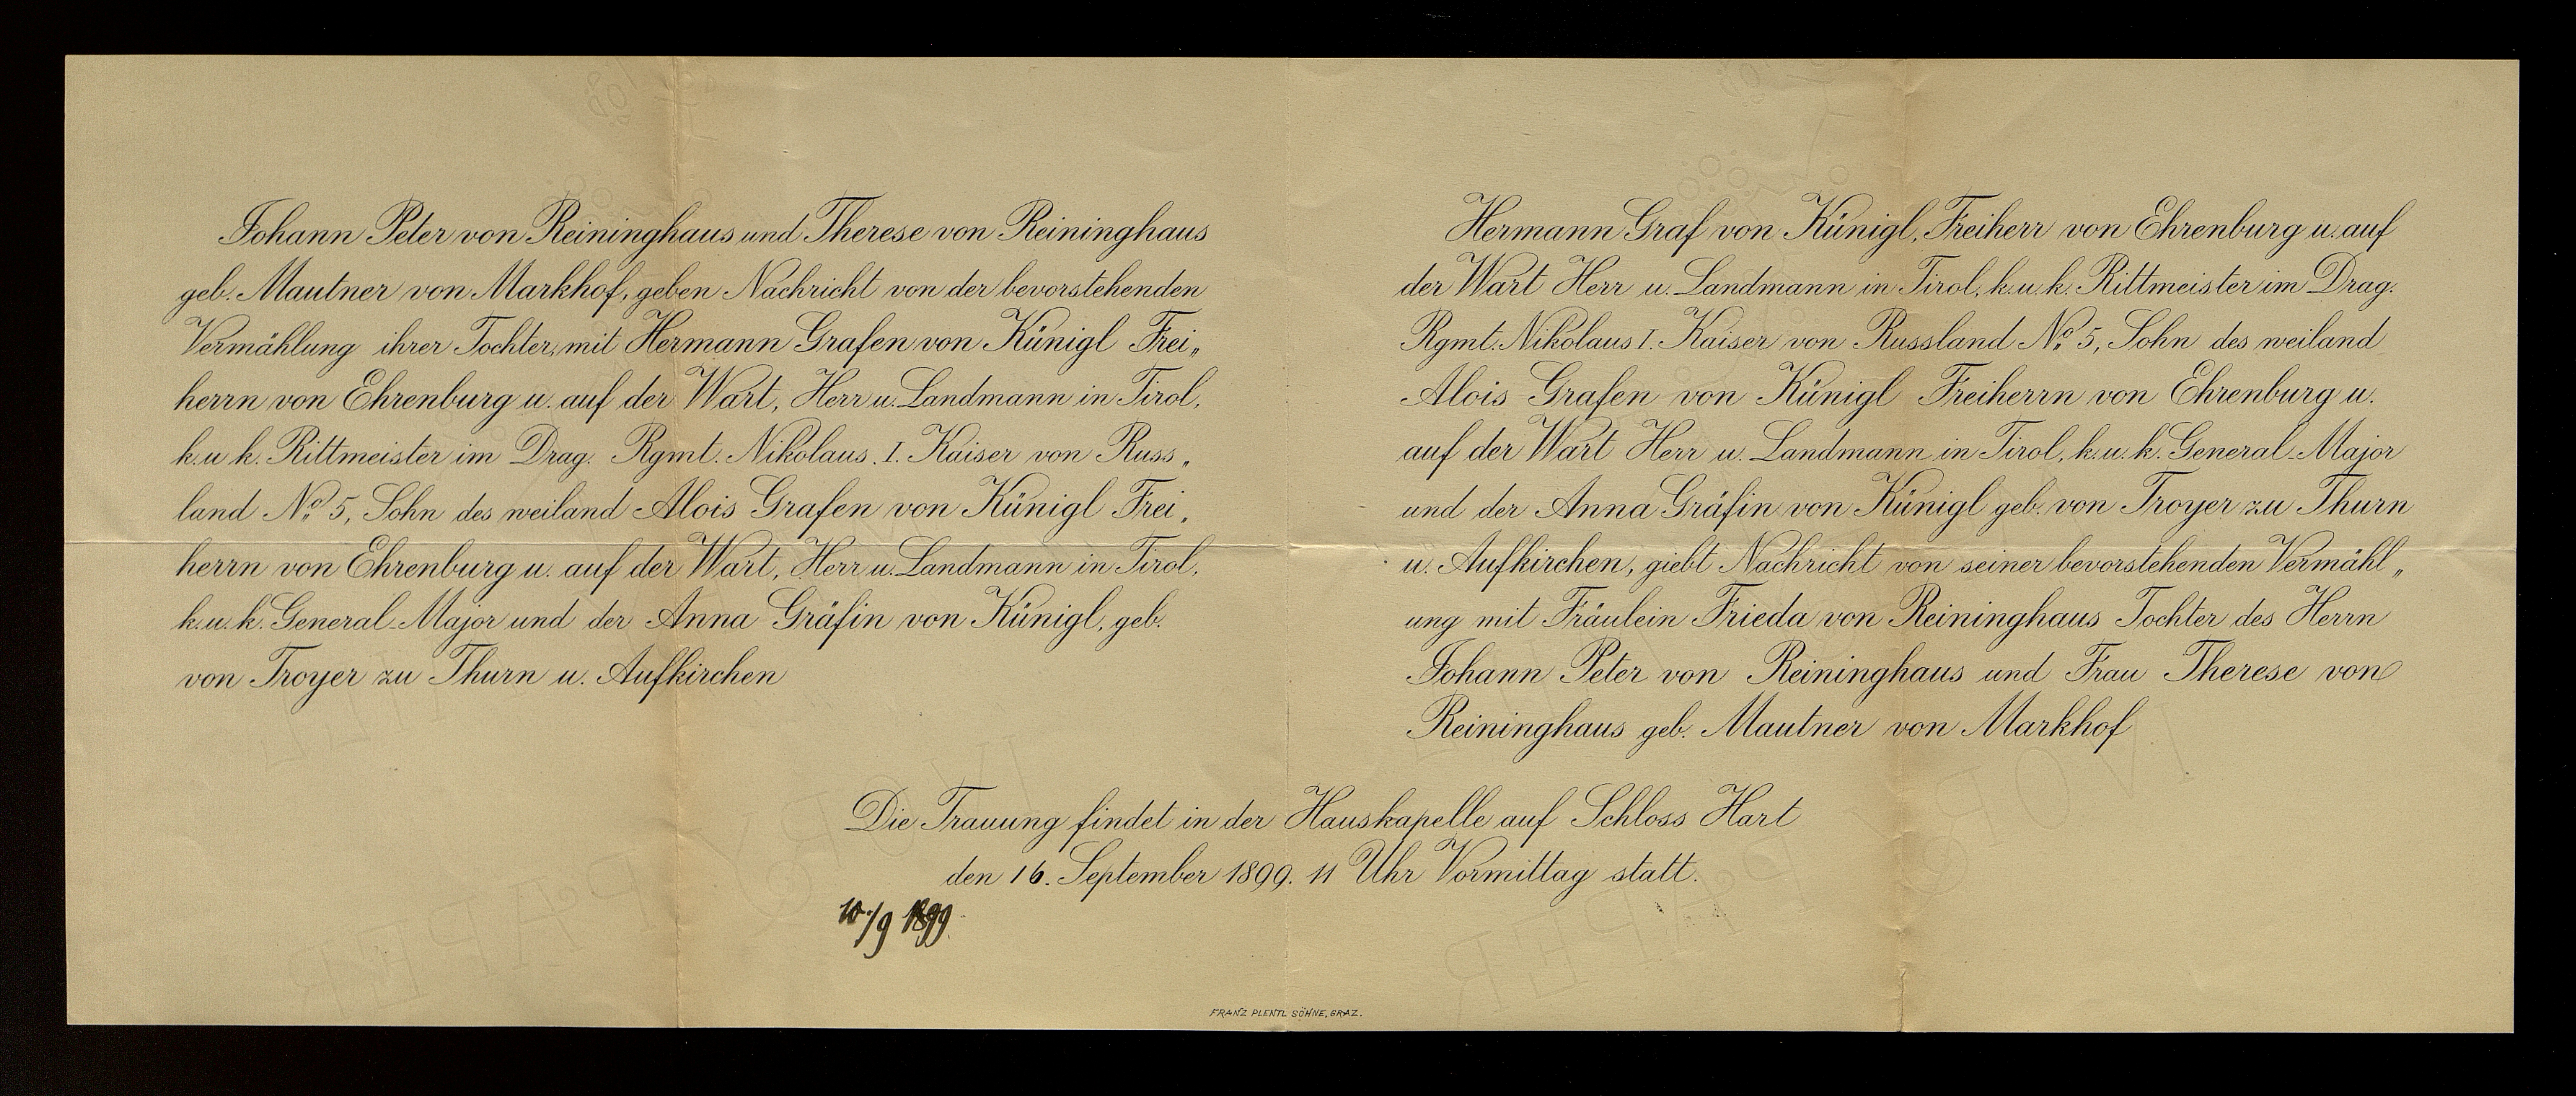 Johann Peter von Reininghaus und Therese von Reininghaus
geb. Mautner von Markhof, geben Nachricht von der bevorstehenden
Vermählung ihrer Tochter, mit Hermann Grafen von Künigl Frei„
herrn von Ehrenburg u. auf der Wart, Herr u. Landmann in Tirol,
k. u. k. Rittmeister im Drag. Rgmt. Nikolaus. I. Kaiser von Russ„
land No. 5, Sohn des weiland Alois Grafen von Künigl Frei„
herrn von Ehrenburg u. auf der Wart, Herr u. Landmann in Tirol,
k. u. k. General-Major und der Anna Gräfin von Künigl, geb.
von Troyer zu Thurn u. Aufkirchen
Hermann Graf von Künigl, Freiherr von Ehrenburg u. auf
der Wart Herr u. Landmann in Tirol, k. u. k. Rittmeister im Drag.
Rgmt. Nikolaus I. Kaiser von Russland No. 5, Sohn des weiland
Alois Grafen von Künigl Freiherrn von Ehrenburg u.
auf der Wart Herr u. Landmann in Tirol, k. u. k. General-Major
und der Anna Gräfin von Künigl geb. von Troyer zu Thurn
u. Aufkirchen, giebt Nachricht von seiner bevorstehenden Vermähl„
ung mit Fräulein Frieda von Reininghaus Tochter des Herrn
Johann Peter von Reininghaus und Frau Therese von
Reininghaus geb. Mautner von Markhof
Die Trauung findet in der Hauskapelle auf Schloss Hart
den 16. September 1899. 11 Uhr Vormittag statt.
10./9 1899.
FRANZ PLENTL SÖHNE, GRAZ.